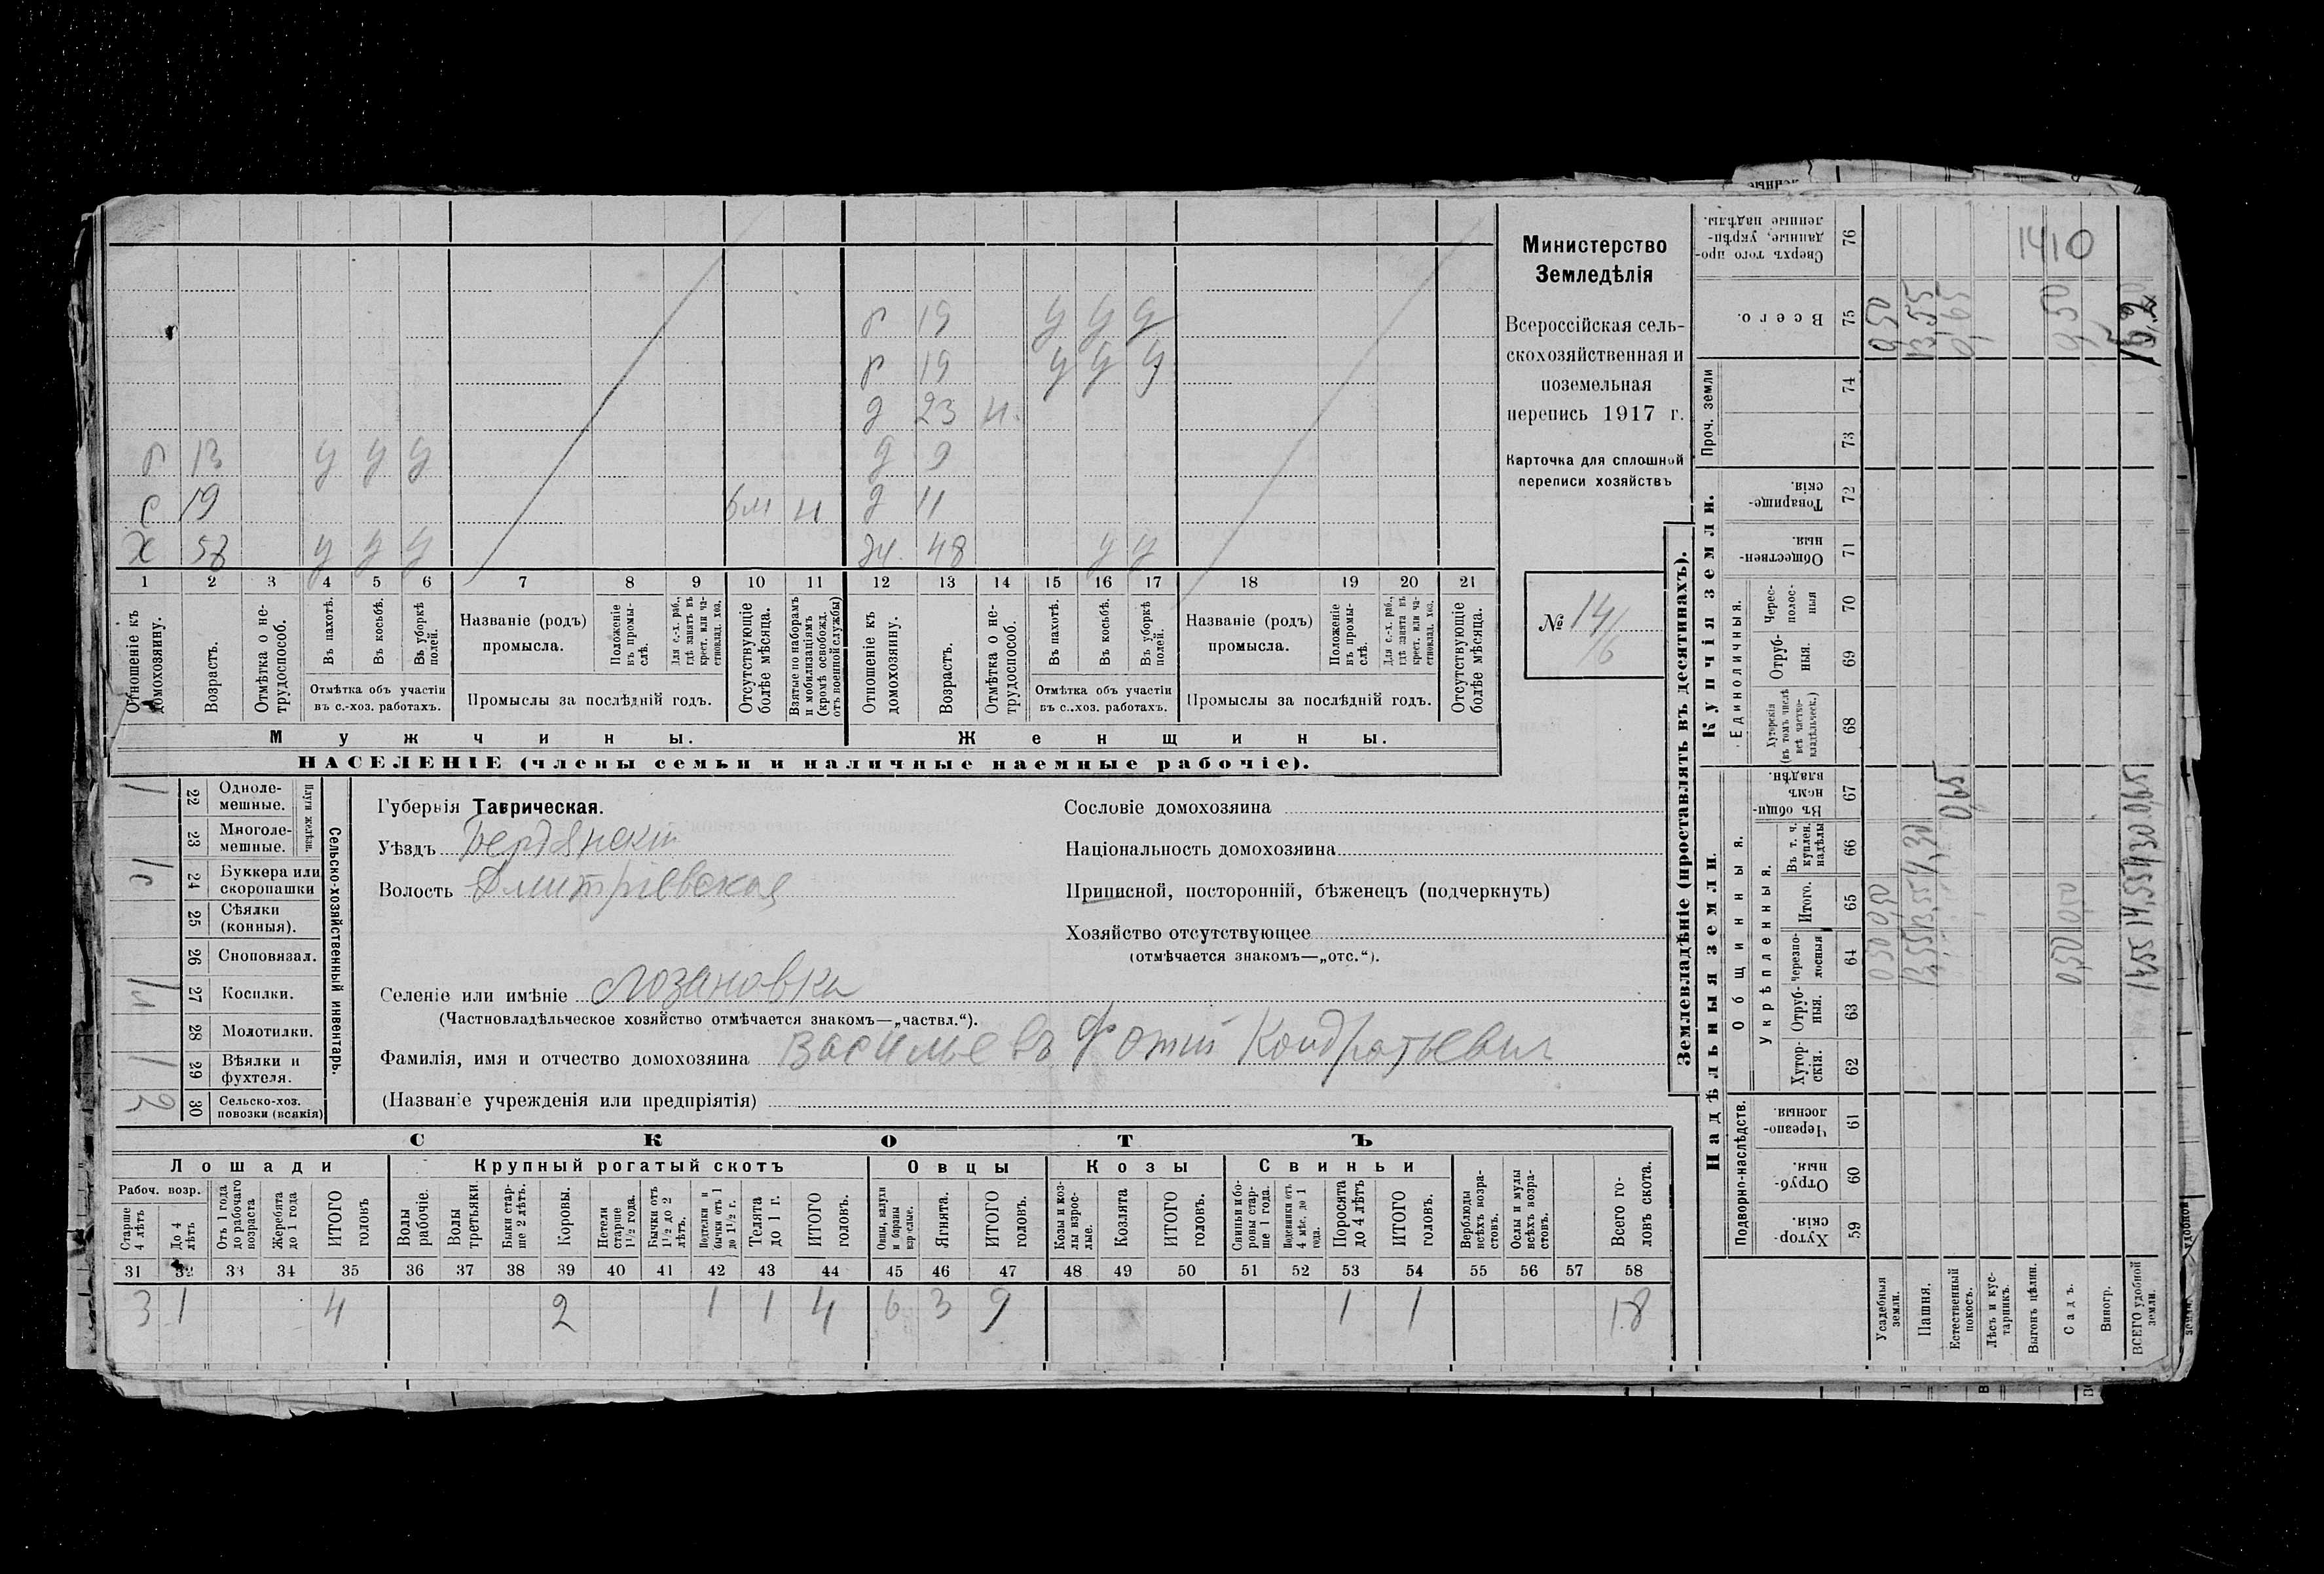 р 19 у у у
р 19 у у у
д 23 н.
р 13 у у у д 9
с 19 6м н д 11
Х 58 у у у ж. 48 у у
1 2 3 4 5 6 7 8 9 10 11 12 13 14 15 16 17 18 19 20 21
Отношеніе къ домохозяину.
Возрастъ.
Отмѣтка о нетрудоспособ.
Въ пахотѣ.
Въ косьбѣ.
Въ уборкѣ полей.
Отмѣтка объ участіи
въ с.-хоз. работахъ.
Названіе (родъ)
промысла.
Положеніе въ промыслѣ.
Для с.-х. раб., гдѣ занятъ въ крест. или частновлад. хоз.
Промыслы за послѣдній годъ.
Отсутствующіе болѣе мѣсяца.
Взятые по наборамъ и мобилизаціямъ (кромѣ освобожд. отъ военной службы)
Отношеніе къ домохозяину.
Возрастъ.
Отмѣтка о нетрудоспособ.
Въ пахотѣ.
Въ косьбѣ.
Въ уборкѣ полей.
Отмѣтка объ участіи
въ с..хоз. работахъ.
Названіе (родъ)
промысла.
Положеніе въ промыслѣ.
Для с.-х. раб., гдѣ занята въ крест. или частновлад. хоз.
Промыслы за послѣдній годъ.
Отсутствующіе болѣе мѣсяца.
Мужчины. Женщины.
НАСЕЛЕНІЕ (члены семьи и наличные наемные рабочіе).
Министерство
Земледѣлія
Всероссійская сель-
скохозяйственная и
поземельная
перепись 1917 г.
Карточка для сплошной
переписи хозяйствъ
№ 14/6
1 22 Одноле-
мешные.
Плуги желѣзн.
23 Многоле-
мешные.
1с 24 Буккера или
скоропашки
25 Сѣялки
(конныя).
26 Сноповязал.
27 Косилки.
28 Молотилки.
1 29 Вѣялки и
фухтеля.
2 30 Сельско-хоз.
повозки (всякія)
Сельско-хозяйственный инвентарь.
Губернія Таврическая.
Уѣздъ Бердянскій
Волость Дмитріевская
Селеніе или имѣніе Лозановка
(Частновладѣльческое хозяйство отмѣчается знакомъ—„частвл.“).
Фамилія, имя и отчество домохозяина Васильевъ Фотій Кондратьевич
(Названіе учрежденія или предпріятія)
Сословіе домохозяина
Національность домохозяина
Приписной, посторонній, бѣженецъ (подчеркнуть)
Хозяйство отсутствующее
(отмѣчается знакомъ—„отс.“).
СКОТЪ
Лошади Крупный рогатый скотъ Овцы Козы Свиньи
Рабоч. возр.
Старше 4 лѣтъ
До 4 лѣтъ
Отъ 1 года до рабочаго возраста
Жеребята до 1 года
ИТОГО головъ
Волы рабочіе.
Волы третьяки.
Быки старше 2 лѣтъ.
Коровы.
Нетели старше 1½ года.
Бычки отъ 1½ до 2 лѣтъ.
Подтелки и бычки отъ 1 до 1½ г.
Телята до 1 г.
ИТОГО головъ.
Овцы, валухи и бараны взрослые.
Ягнята.
ИТОГО головъ.
Козы и козлы взрослые.
Козлята
ИТОГО головъ.
Свиньи и боровы старше 1 года.
Подсвинки отъ 4 мѣс. до 1 года.
Поросята до 4 лѣтъ
ИТОГО головъ.
Верблюды всѣхъ возрастовъ.
Ослы и мулы всѣхъ возрастовъ.
Всего головъ скота.
31 32 33 34 35 36 37 38 39 40 41 42 43 44 45 46 47 48 49 50 51 52 53 54 55 56 57 58
3 1 4 2 1 1 4 6 3 9 1 1 18
Землевладѣніе (проставлять въ десятинахъ).
Надѣльныя земли. Купчія земли.
Подворно-наслѣдств.
Общинныя.
Укрѣпленныя.
Единоличныя.
Проч. земли
59 Хуторскія.
60 Отрубныя.
61 Черезполосныя.
62 Хуторскія.
63 Отрубныя.
64 Черезполосныя
65 Итого.
66 Въ т. ч. куплен. надѣлы
67 Въ общинномъ владѣн.
68 Хуторскія (въ томъ числѣ всѣ частновладѣльческ.)
69 Отрубныя.
70 Череcполосныя
71 Общественныя.
72 Товарищескія.
73
74
75 Всего.
76 Сверхъ того проданные, укрѣпленные надѣлы.
Усадебныя земли. 0,50 0,50 0,50
Пашня. 13,55 13,55 4,30 13,55
Естественный покосъ. 0,65 0,65
Лѣсъ и кустарникъ.
Выгонъ цѣлин.
Садъ. 0,50 0,50 0,50
Виногр.
ВСЕГО удобной земли. 14,55 14,55 4,30 0,65
1410